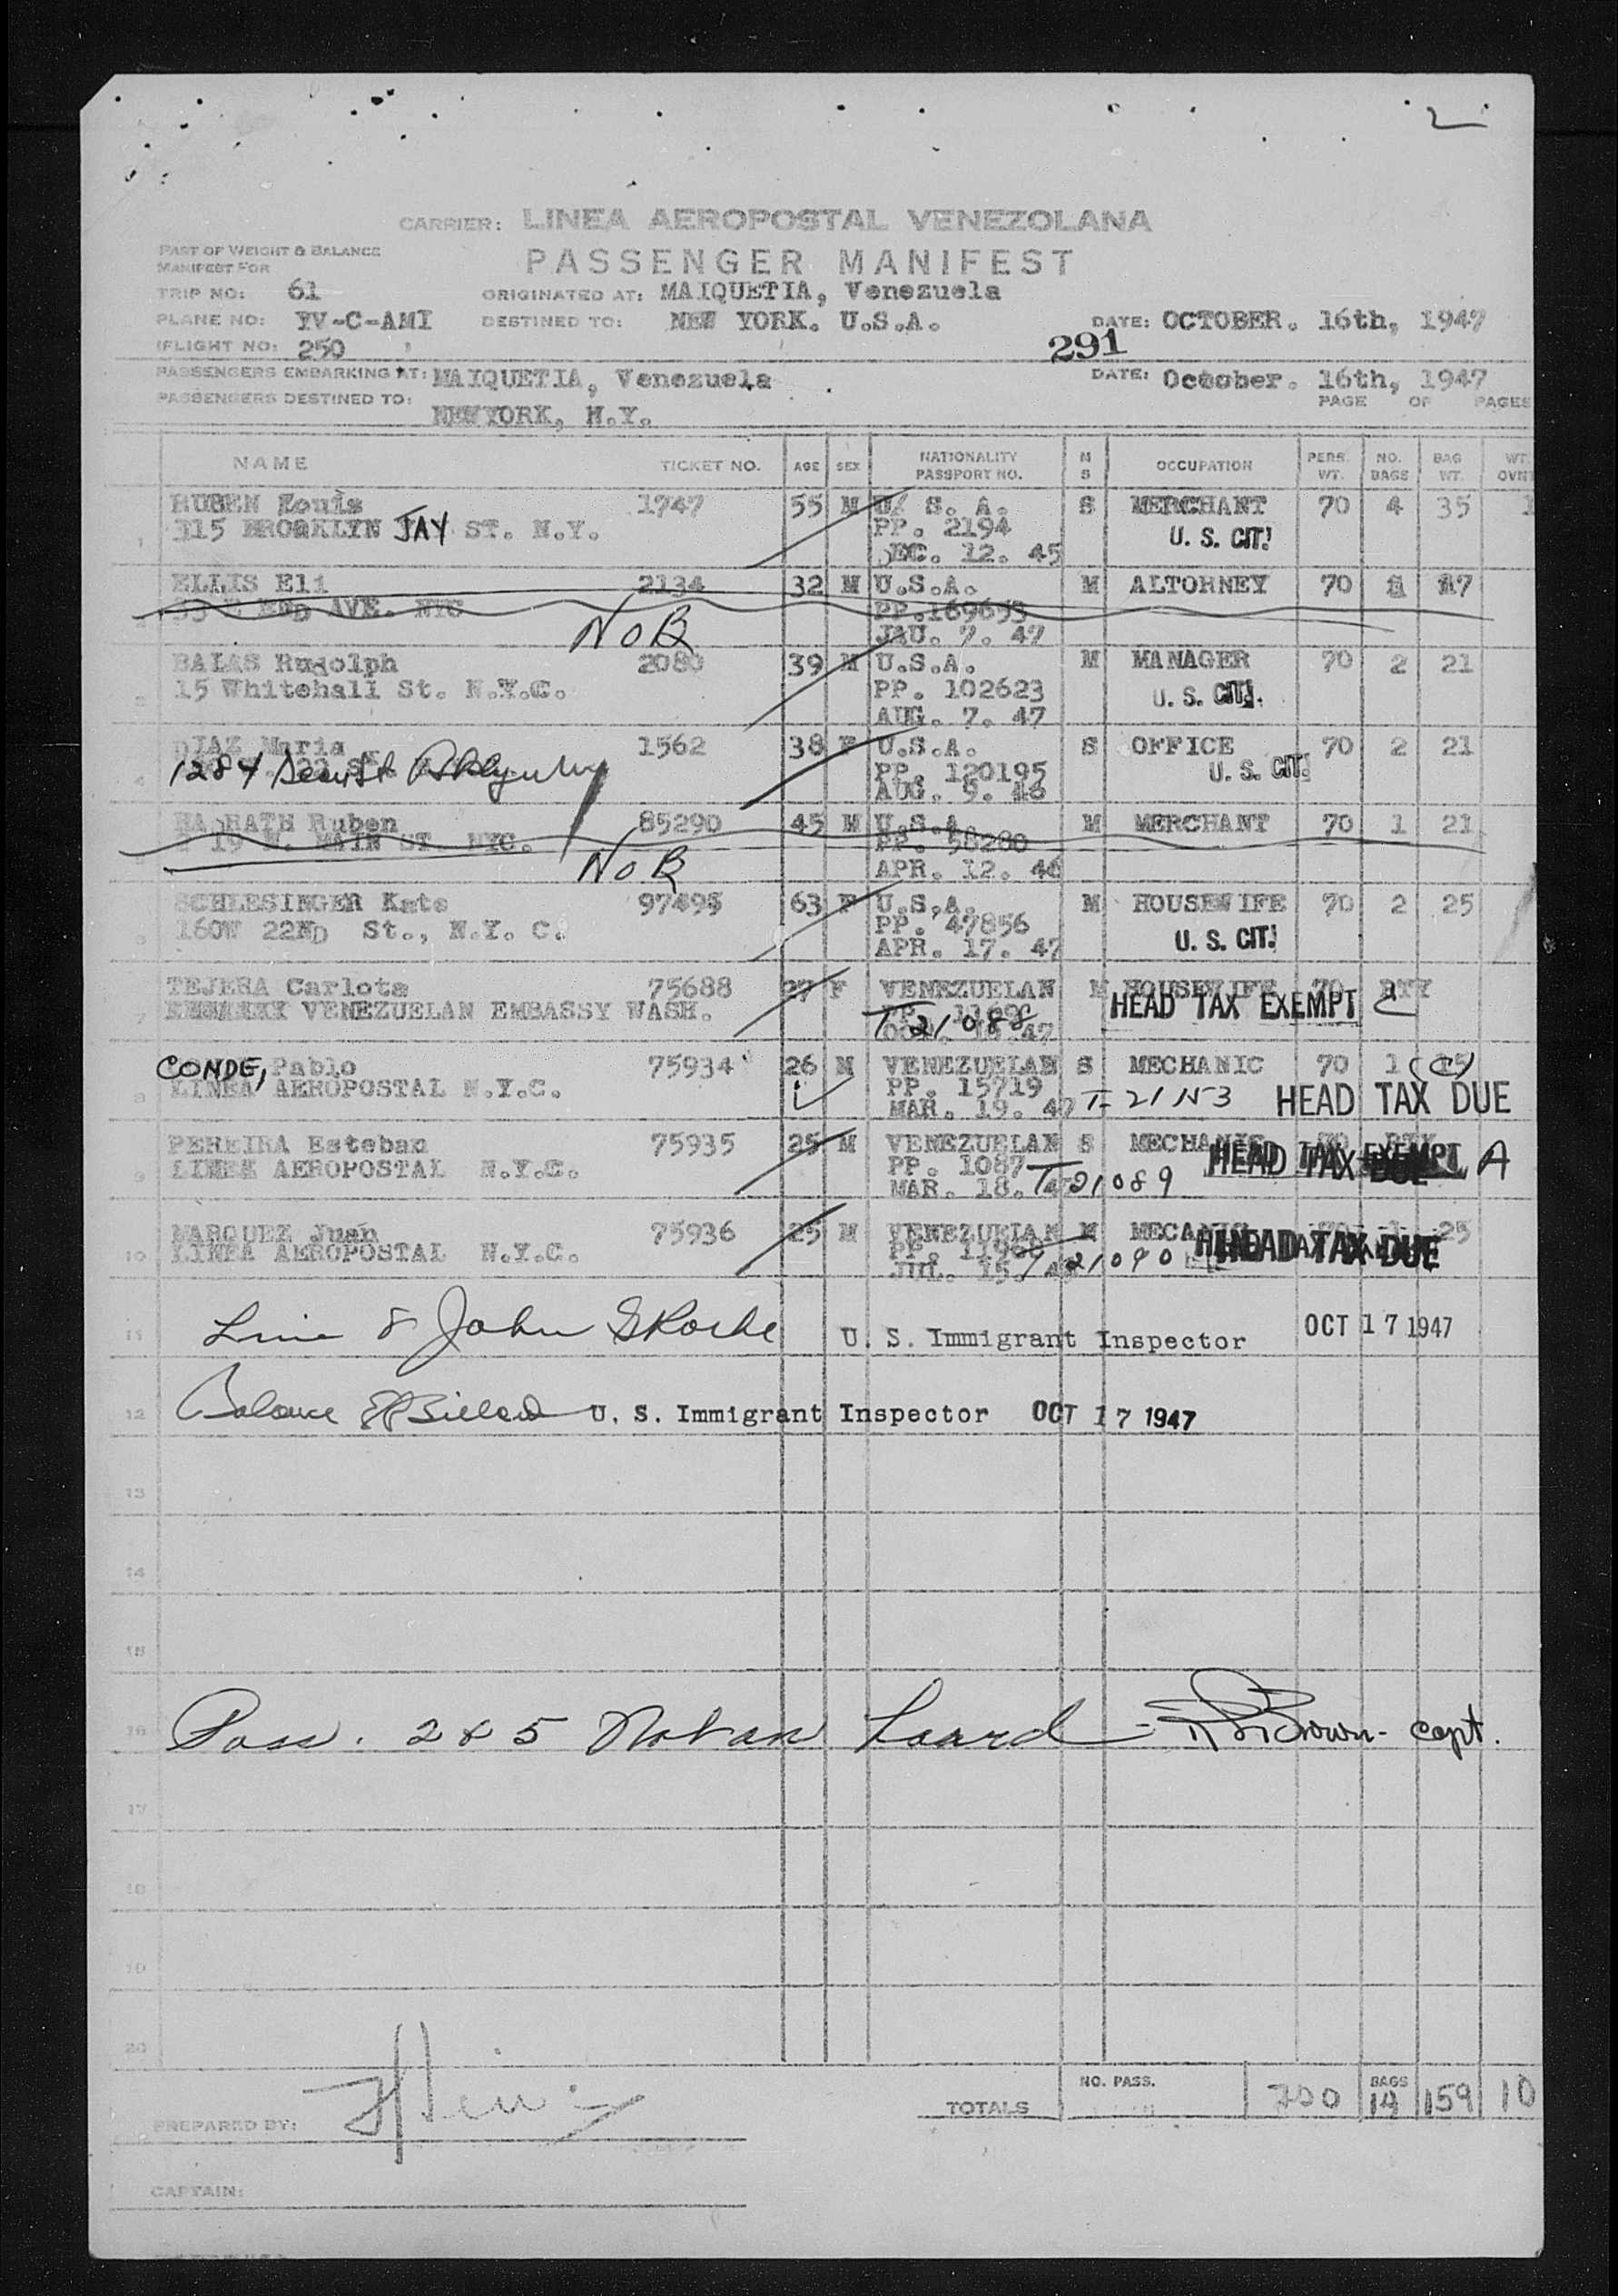 2
CARRIER: LINEA AEROPOSTAL VENEZOLANA
PART OF WEIGHT & BALANCE
MANIFEST FOR
PASSENGER MANIFEST
TRIP NO: 61 ORIGINATED AT: MAIQUETIA, Venezuela
PLANE NO: YV-C-AMI DESTINED TO: NEW YORK. U.S.A. DATE: OCTOBER. 16th, 1947
FLIGHT NO: 250 291
PASSENGERS EMBARKING AT: MAIQUETIA, Venezuela DATE: October. 16th, 1947
PASSENGERS DESTINED TO: NEWYORK, N.Y. PAGE OF PAGES
NAME TICKET NO. AGE SEX NATIONALITY PASSPORT NO. M S OCCUPATION PERS. WT. NO. BAGS BAG WT. WT. OVN
1 RUBEN Louis 1747 55 M U. S. A. S MERCHANT 70 4 35 1
315 BROOKLYN JAY ST. N.Y. PP. 2194 U. S. CIT.
DEC. 12. 45
2 ELLIS Eli 2134 32 M U.S.A. M ALTORNEY 70 17
END AVE. NYC PP.169653
NOB JAU. 7. 47
3 BALAS Rudolph 2080 39 M U.S.A. M MANAGER 70 2 21
15 Whitehall St. N.Y.C. PP. 102623 U. S. CIT.
AUG. 7. 47
4 DIAZ Maria 1562 38 F U.S.A. S OFFICE 70 2 21
1284 St PP. 120195 U. S. CIT.
AUG. 9. 46
5 Ruben 85290 45 M U.S.A. M MERCHANT 70 1 21
19 MAIN ST. NYC. PP. 58280
NOB APR. 12. 46
6 SCHLESINGER Kate 97495 63 F U.S.A. M HOUSEWIFE 70 2 25
160W 22ND St., N.Y. C. PP. 47856 U. S. CIT.
APR. 17. 47
7 TEJERA Carlota 75688 27 F VENEZUELAN M HOUSEWIFE 70 BTY
VENEZUELAN EMBASSY WASH. T-21088 HEAD TAX EXEMPT
8 CONDE, Pablo 75934 26 M VENEZUELAN S MECHANIC 70 1 15 (C)
LINEA AEROPOSTAL N.Y.C. PP. 15719
MAR. 19. 47 HEAD TAX DUE
9 PEREIRA Esteban 75935 25 M VENEZUELAN S MECHANIC
LINEA AEROPOSTAL N.Y.C. PP. 1087 HEAD TAX EXEMPT A
MAR. 18. T-21089
10 MARQUEZ Juan 75936 25 M VENEZUELAN M MECANIC 70 1 25
LINEA AEROPOSTAL N.Y.C. PP. HEAD TAX DUE
JUL. 15. T 21090
11 Line 8 John U. S. Immigrant Inspector OCT 17 1947
12 Balance U. S. Immigrant Inspector OCT 17 1947
13
14
15
16 Pass. 2 & 5 Not on board - Brown - capt.
17
18
19
20
TOTALS NO. PASS. 700 BAGS 14 159 10
PREPARED BY:
CAPTAIN: